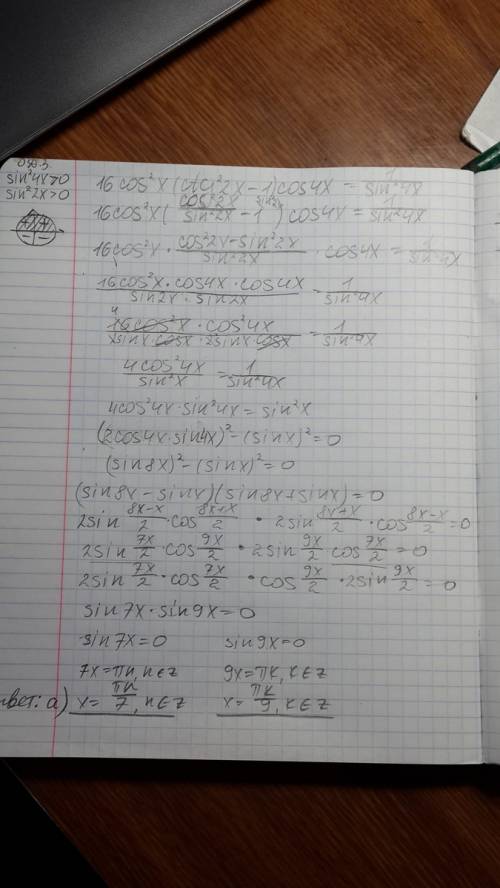 ОДЗ.
sin²4x>0
sin²2x>0
16cos²x(ctg²2x-1)cos4x = 1/sin²4x
16cos²x(cos²2x/sin²2x - 1^{sin²2x})cos4x = 1/sin²4x
16cos²x · (cos²2x-sin²2x)/sin²2x · cos4x = 1/sin²4x
16cos²x·cos4x·cos4x/(sin2x·sin2x) = 1/sin²4x
4 16cos²x·cos²4x/(2sinx·cosx·2sinx·cosx) = 1/sin²4x
4cos²4x/sin²x = 1/sin²4x
4cos²4x·sin²4x = sin²x
(2cos4x·sin4x)²-(sinx)²=0
(sin8x)²-(sinx)²=0
(sin8x-sinx)(sin8x+sinx)=0
2sin (8x-x)/2 ·cos (8x+x)/2 · 2sin (8x+x)/2 ·cos (8x-x)/2 =0
2sin 7x/2 ·cos 9x/2 · 2sin 9x/2 cos 7x/2 =0
2sin 7x/2 ·cos 7x/2 · cos 9x/2 · 2sin 9x/2 =0
sin7x·sin9x=0
sin7x=0 sin9x=0
7x=πn, n∈z 9x=πk, k∈z
твет: а) x= πn/7, n∈z x= πk/9, k∈z